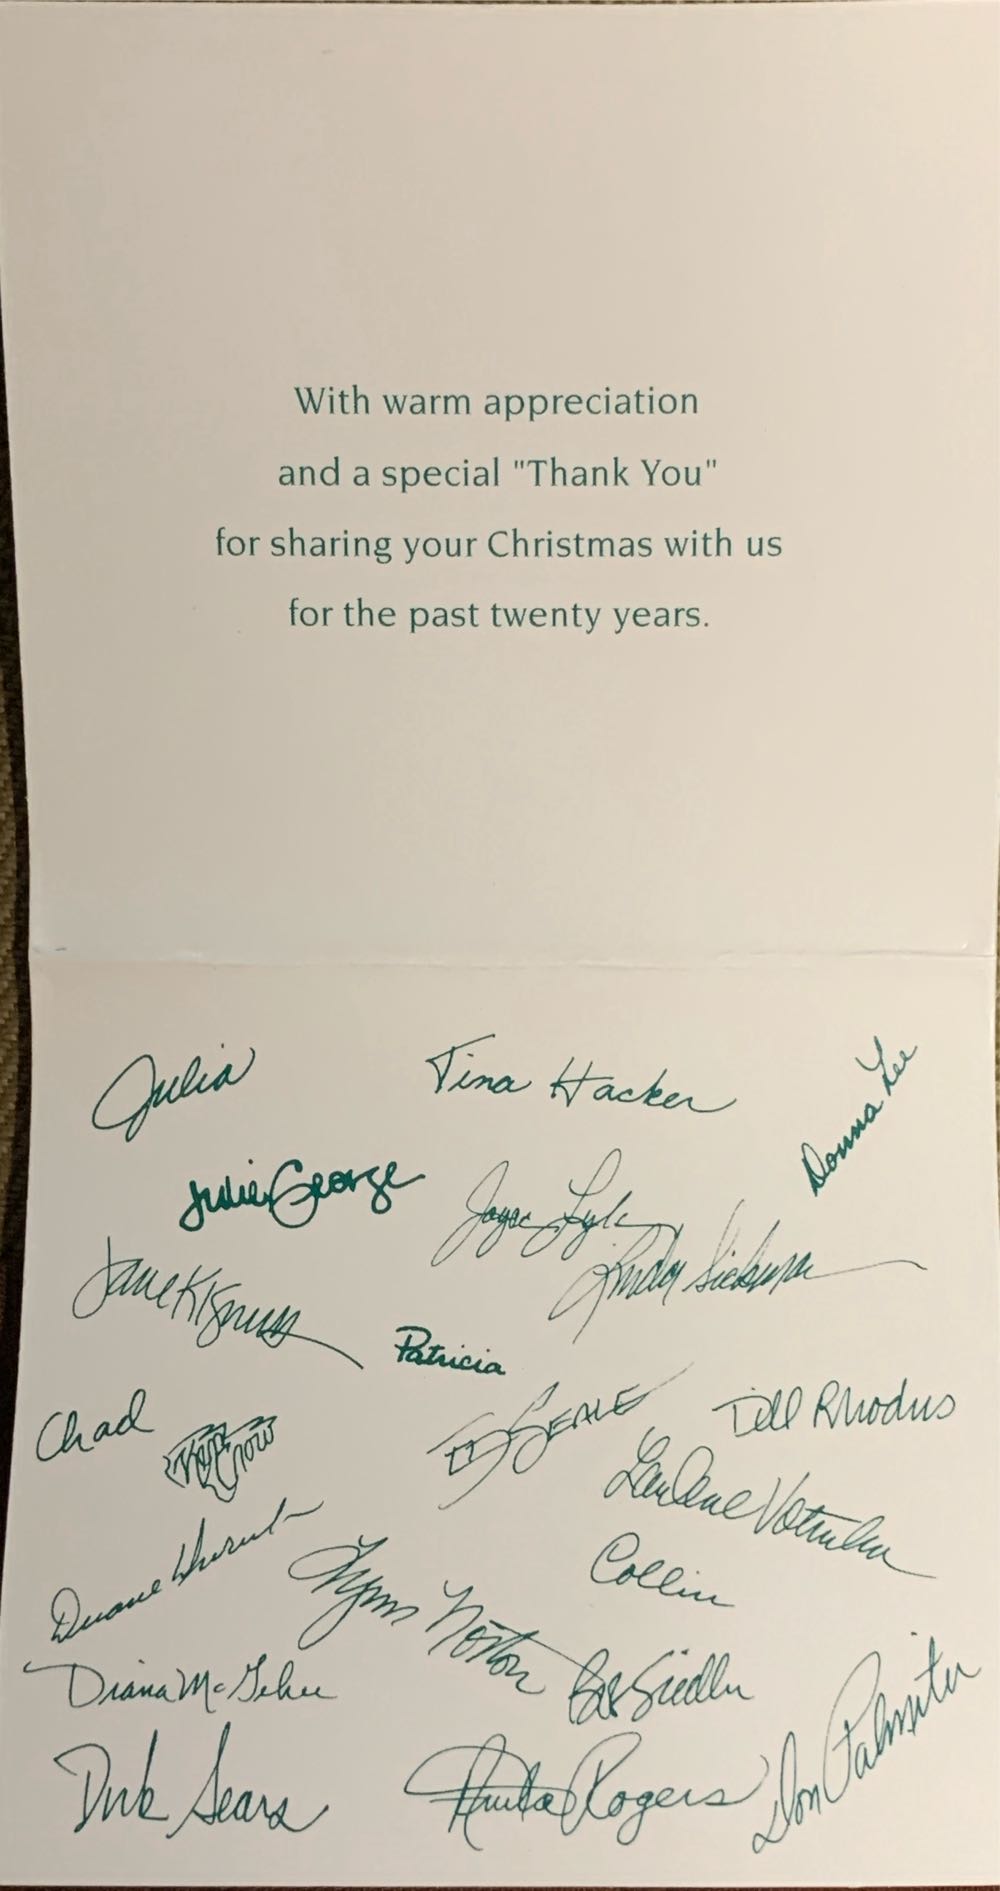 With warm appreciation
and a special "Thank You"
for sharing your Christmas with us
for the past twenty years.
Julia
Tina Hacker
Donna Lee
Julie George
Joyce Lyle
Jane K
Patricia
Chad
Seale
Dell Rhodus
LeuDene
Collin
Duane
Lynn Norton
Diana McGehee
Bob Siedler
Dirk Sears
Rogers
Don Palmiter